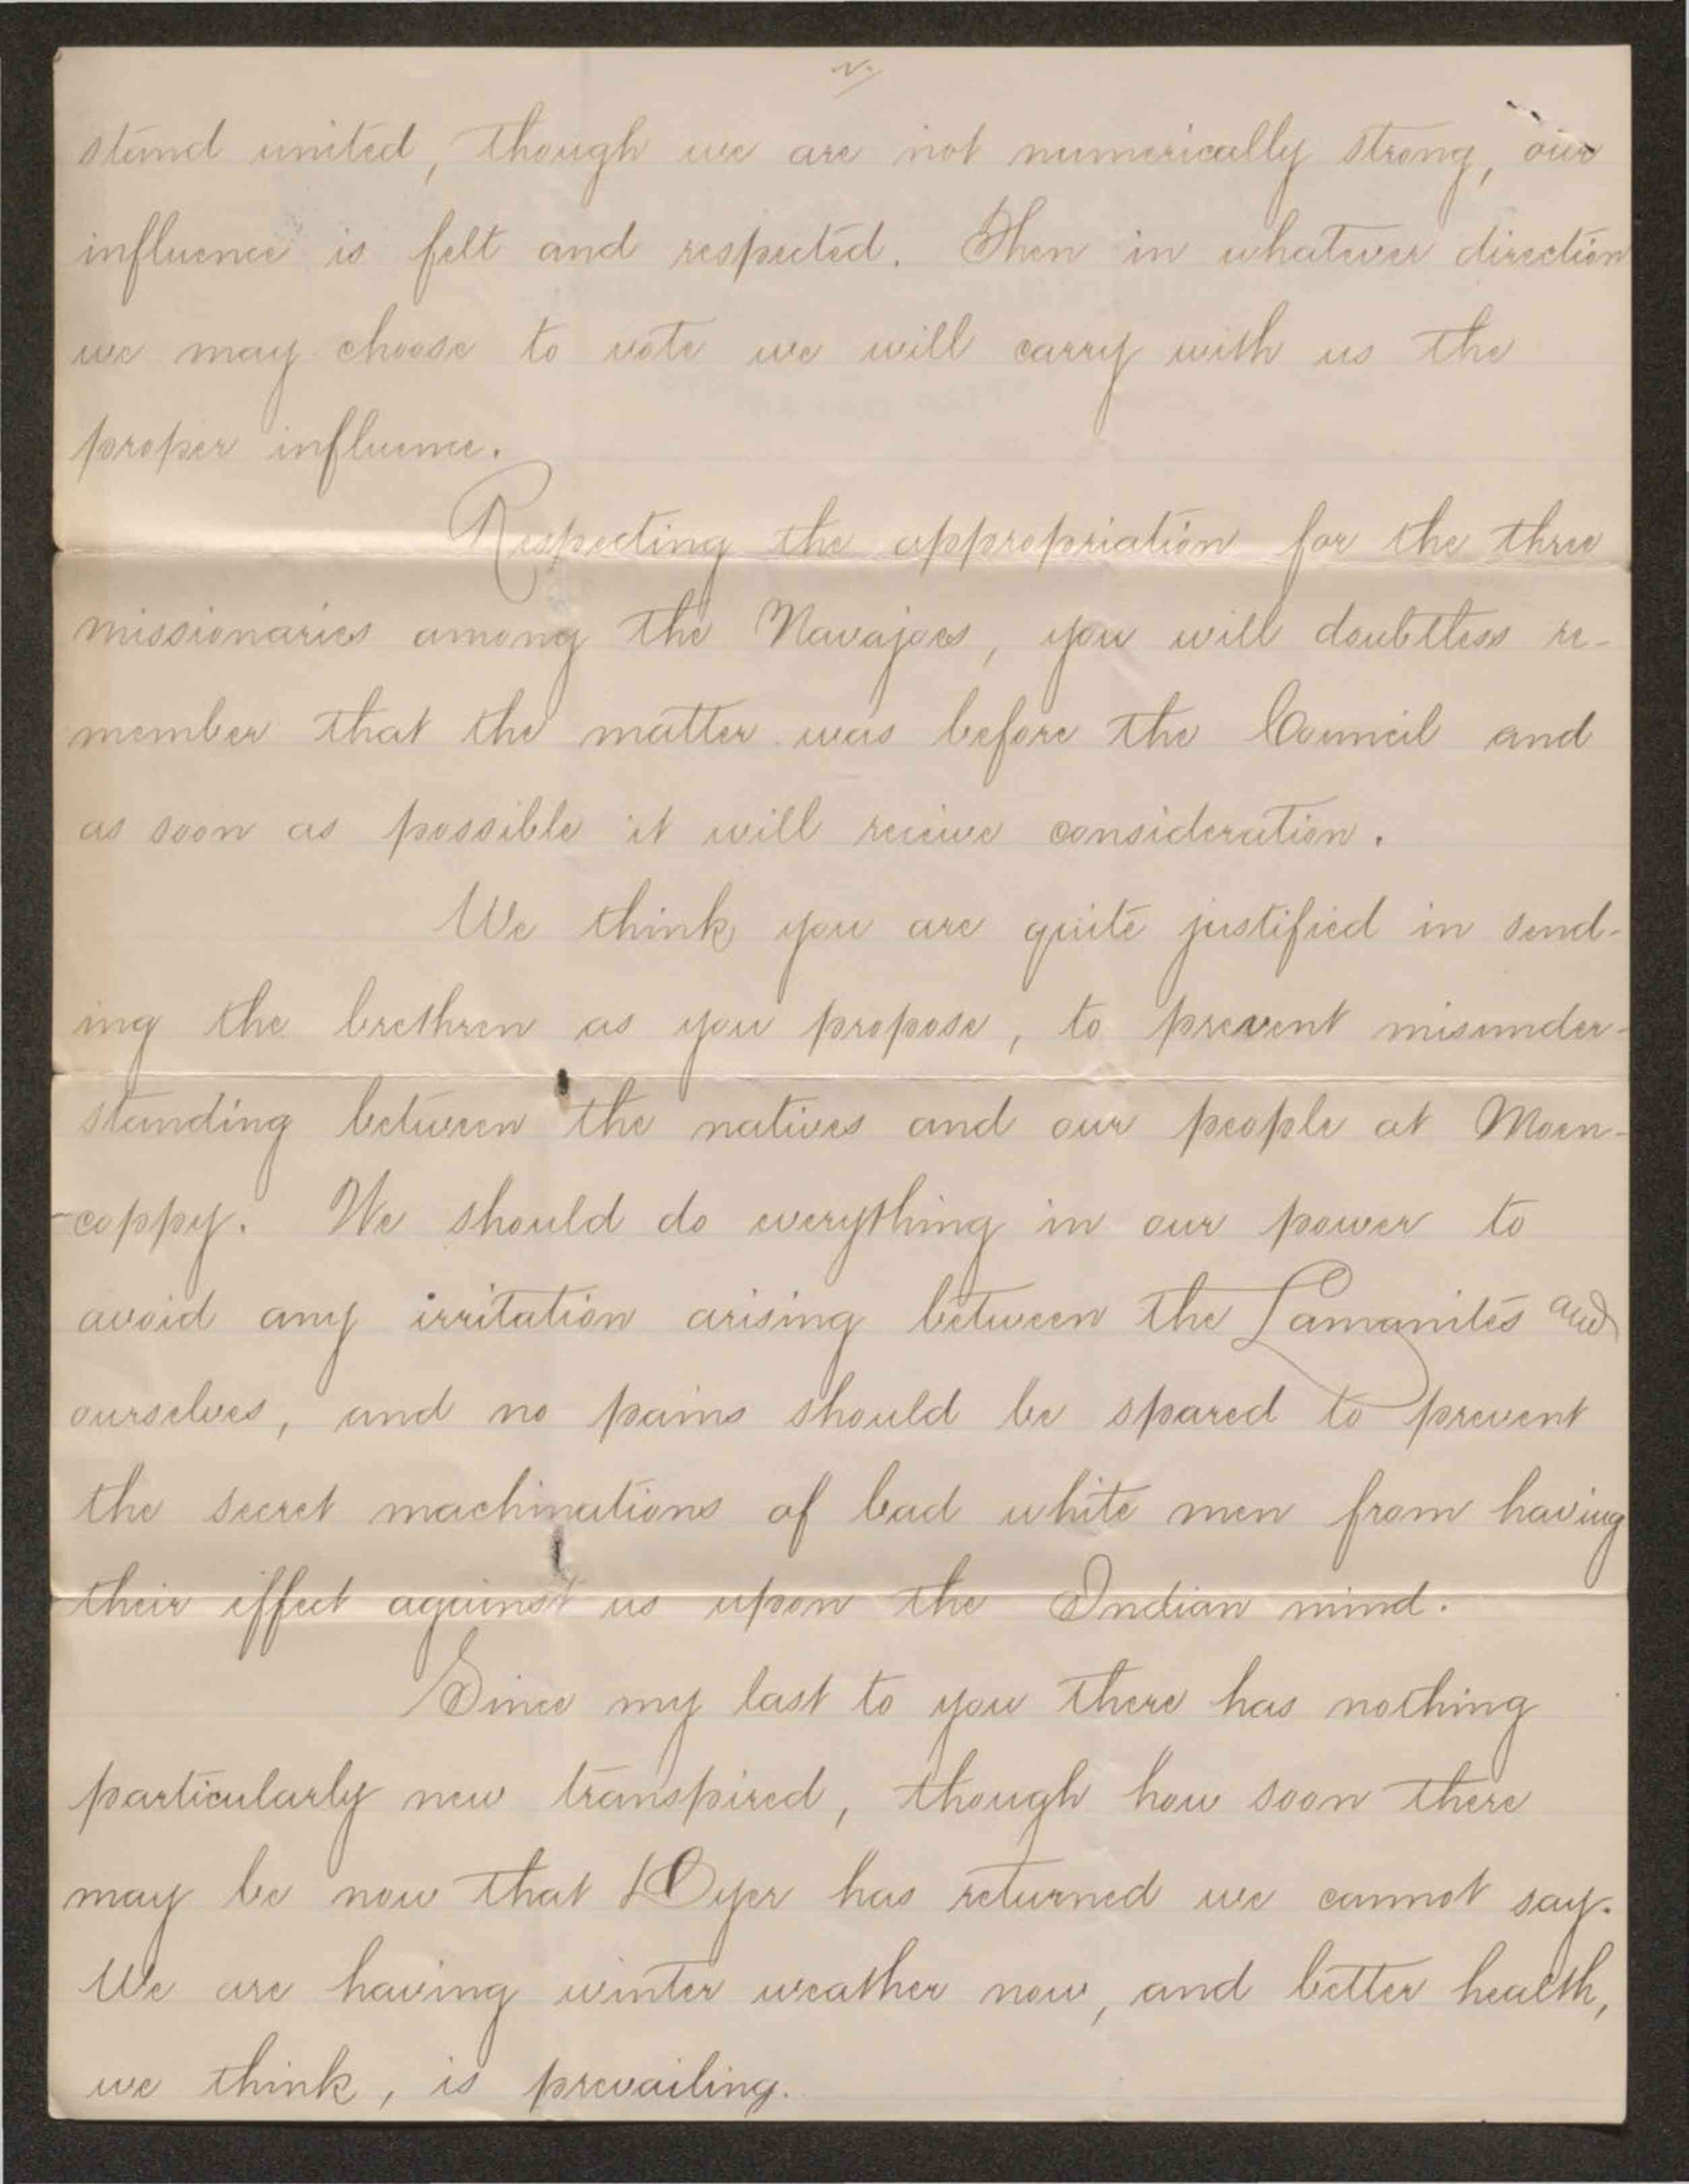 stand united, though we are not numerically strong, our
influence is felt and respected. Then in whatever direction
we may choose to vote we will carry with us the
proper influence.
Respecting the appropriation for the three
missionaries among the Navajoes, you will doubtless re-
member that the matter was before the Council and
as soon as possible it will receive consideration.
We think you are quite justified in send-
ing the brethren as you propose, to prevent misunder-
standing between the natives and our people at Moen-
-coppy. We should do everything in our power to
avoid any irritation arising between the Lamanites and
ourselves, and no pains should be spared to prevent
the secret machinations of bad white men from having
their effect against us upon the Indian mind.
Since my last to you there has nothing
particularly new transpired, though how soon there
may be now that Dyer has returned we cannot say.
We are having winter weather now, and better health,
we think, is prevailing.